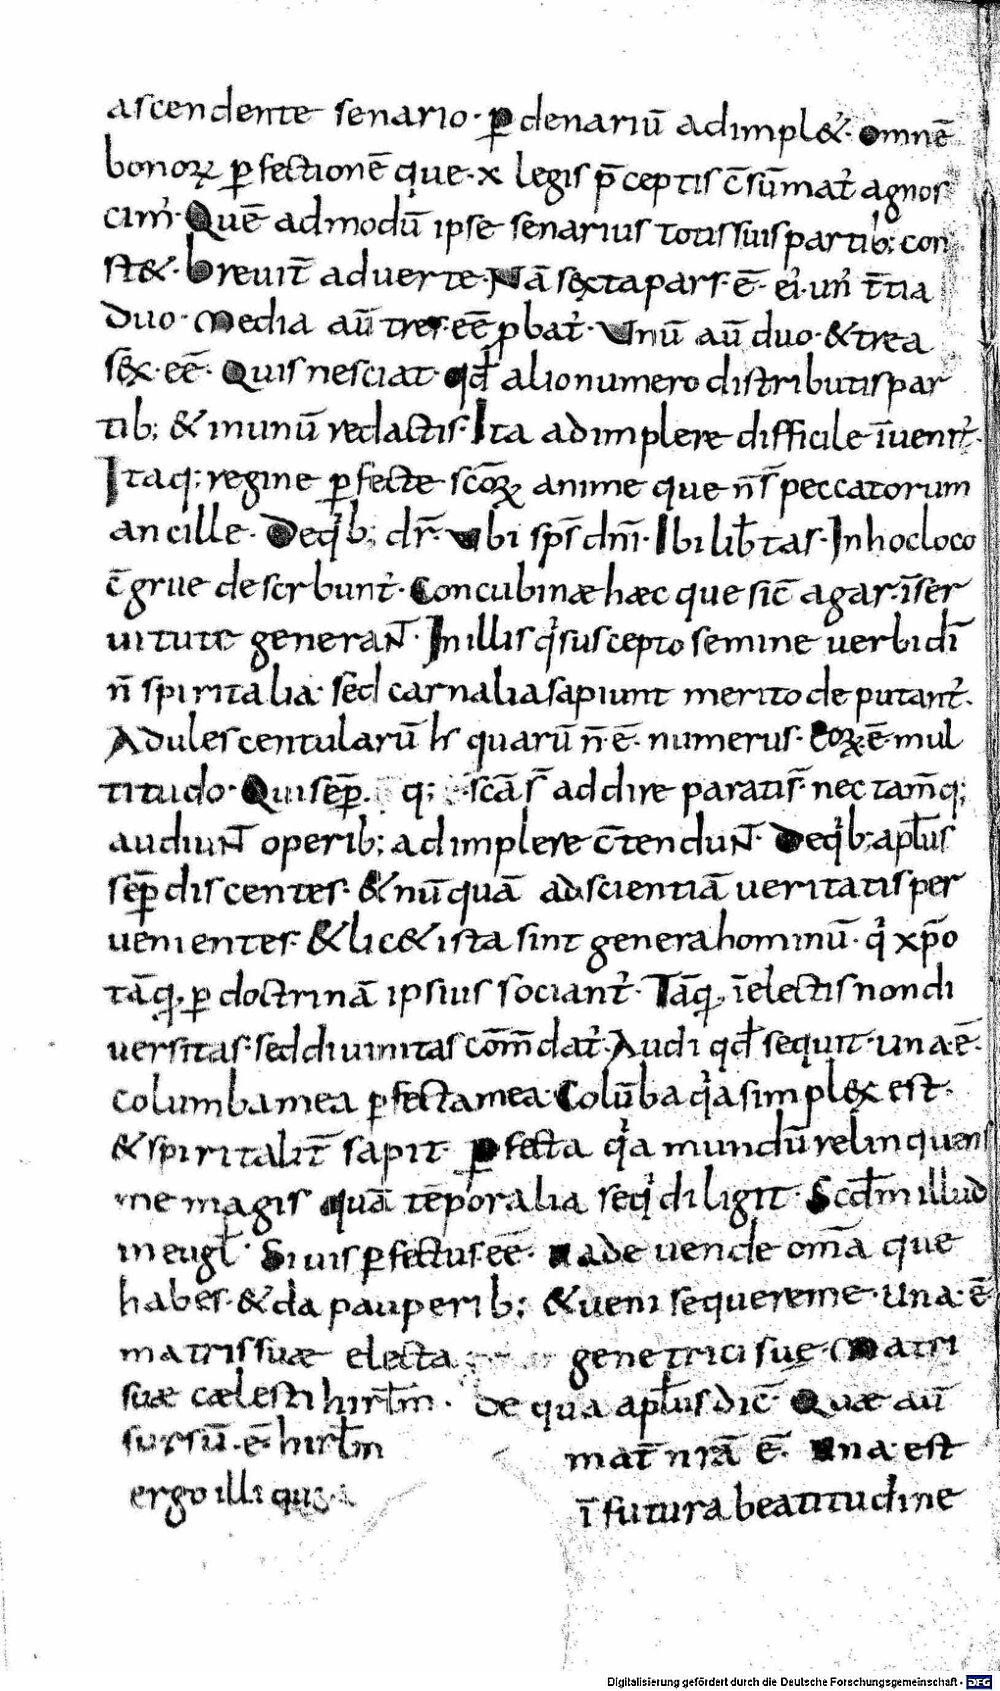 ascendente senario · ꝑ denariū adimpl&· omnē
bonoꝝ ꝑfectionē que · x legis p̄ceptis c̄sūmat᷑ agnos
cim᷒· Quē admodū ipse senarius totis suis partib; con
st&· breuit̄ aduerte · Nā sexta pars · ē· ei᷒ · un᷒ t̄tia
duo · Media aū tres · eē ꝓbat᷑· Unū aū duo · & trea
sex · eē · Quis nesciat · qđ alio numero distributis par
tib; & in unū redactis · Ita adimplere difficile īuenit᷑·
Itaq; regine ꝑfecte scōꝝ anime que n̄ s̄ peccatorum
ancille · De qⁱb; dr̄ · ubi sps̄ dnī· Ibi lib̄tas · In hoc loco
c̄grue descrbunt᷑· Concubinæ hæc que sic̄ agar · īser
uitute generant · In illis qⁱ suscepto semine uerbi dī
n̄ spiritalia · sed carnalia sapiunt merito deputant᷑·
Adulescentularū ł quarū n̄ · ē · numerus · Eoꝝ · ē · mul
titudo · Qui sēp q; scā s̄ addire paratis̄ · nec tam̄ q;
audiunt operib; adimplere c̄tendunt · De qⁱb; aptłus
sēp discentes · & nūquā ad scientiā ueritatis per
uenientes · & lic& ista sint genera hominū · qⁱ xp̄o
tāq ꝑ doctrinā ipsius sociant᷑· Tāq īelectis non di
uersitas · sed diuinitas com̄dat᷑· Audi qđ sequit · una · ē ·
columba mea ꝑfecta mea · Colūba qⁱa simplex est ·
& spiritalit̄ sapit · Ꝑfecta qⁱa mundū relinquens
me magis quā tēporalia seqⁱ diligit · Scđm illud
in eugł· Si uis ꝑfectus eē · uade uende om̄a que
habes · & da pauperib; & ueni sequere me · Una · ē
matris suæ electa genetrici sue · Matri
suæ cælesti hirłm · De qua aptłus dic̄ · Quæ aū
sursū · ē · hirłm mat̄ nrā ē · Una est
ergo illi ī futura beatitudine
Digitalisierung gefördert durch die Deutsche Forschungsgemeinschaft - DFG